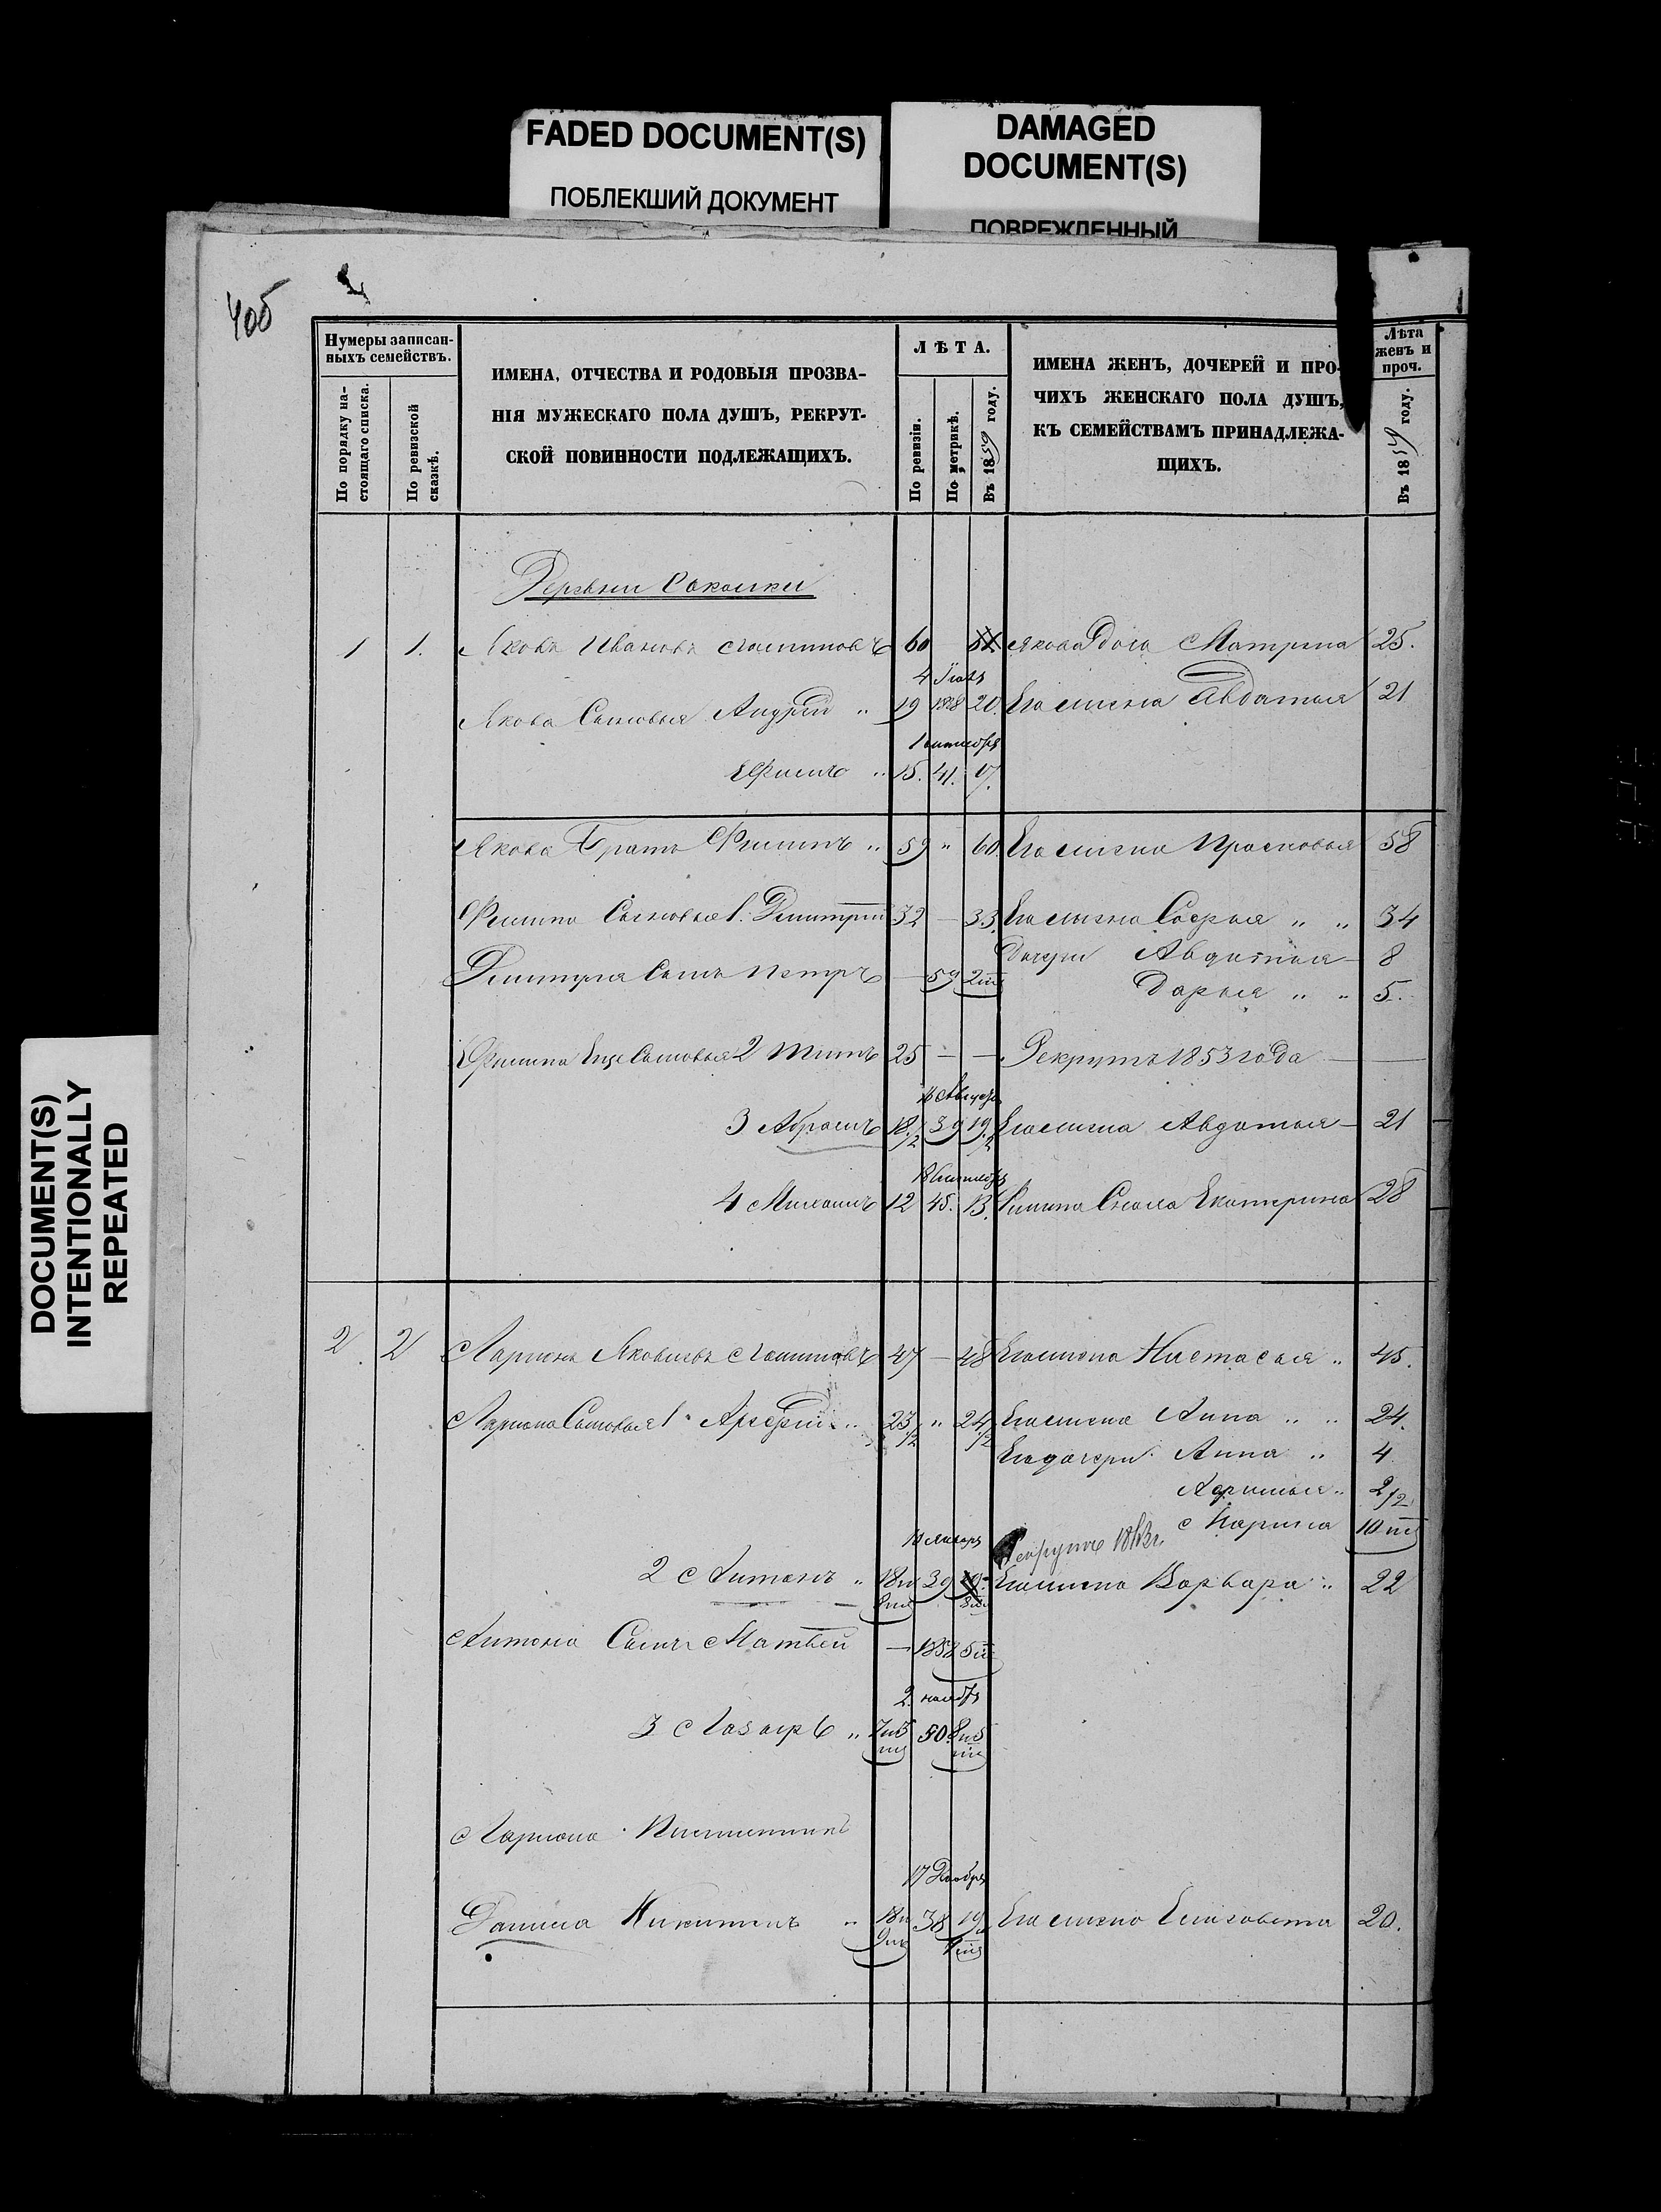 FADED DOCUMENT(S)
ПОБЛЕКШИЙ ДОКУМЕНТ
DAMAGED
DOCUMENT(S)
ПОВРЕЖДЕННЫЙ
DOCUMENT(S)
INTENTIONALLY
REPEATED
406
Нумеры записан-
ныхъ семействъ.
По порядку на-
стоящаго списка.
По ревизской
сказкѣ.
ИМЕНА, ОТЧЕСТВА И РОДОВЫЯ ПРОЗВА-
НІЯ МУЖЕСКАГО ПОЛА ДУШЪ, РЕКРУТ-
СКОЙ ПОВИННОСТИ ПОДЛЕЖАЩИХЪ.
ЛѢТА.
По ревизіи.
По метрикѣ.
Въ 1859 году.
ИМЕНА ЖЕНЪ, ДОЧЕРЕЙ И ПРО-
ЧИХЪ ЖЕНСКАГО ПОЛА ДУШЪ,
КЪ СЕМЕЙСТВАМЪ ПРИНАДЛЕЖА-
ЩИХЪ.
Лѣта
женъ и
проч.
Въ 1859 году.
Деревни
1 1. Яковъ Ивановъ 60 61 Якова Матрина 25.
4
Якова Сыновья Андрей " 19 1838 20. Его жена Авдотья 21
1 октября
Ефимъ " 15. 41. 17.
Якова Братъ Филипъ " 59 " 60. Его жена Прасковья 58
Филипа Сыновья 1. Дмитрій 32 — 33. Его жена Софья " " 34
Дочери Авдотья — 8
Дмитрія Сынъ Петръ — 59 2 Дарья " " 5.
Филипа Еще Сыновья 2 Титъ 25 — — Рекрутъ 1853 года
Августа
3 Абрамъ 18 1/2 39 19 1/2 Его жена Авдотья — 21
18 Сентября
4 Михаилъ 12 45. 13. Филипа Сноха Екатерина 28
2. 2 Ларионъ Яковлевъ 47 — 48 Его жена Настасья " 45.
Лариона Сыновья 1 " 23 1/2 " 24 1/2 Его жена Анна " " 24.
Его дочери Анна " 4
2 1/2
Марина 10
10 Января
Рекрутъ
2 Антонъ " 18 39 19 Его жена Варвара " 22
Антона Сынъ Матвей — 1858 5
2 ноября
3 Лазарь " 7 и 5 50. 8 и 5
Лариона
17
Данила Никитинъ " 18 38 19 Его жена Елизавета 20.